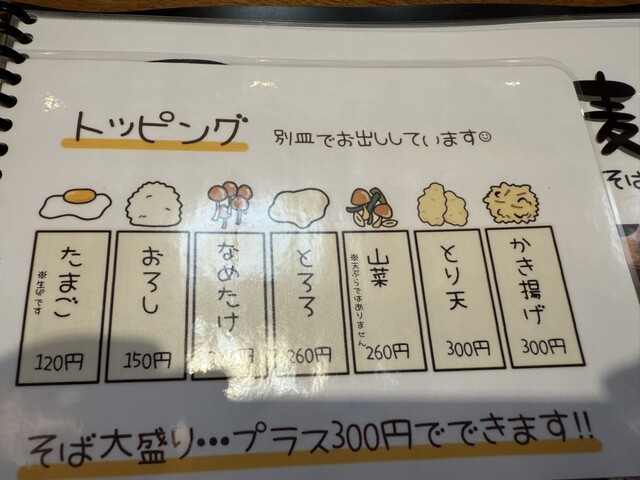 トッピング
別皿でお出ししています
たまご
※生卵です
120円
おろし
150円
なめたけ
とろろ
260円
山菜
※天ぷらではありません
260円
とり天
300円
かき揚げ
300円
そば大盛り…プラス300円でできます!!
麦
そば